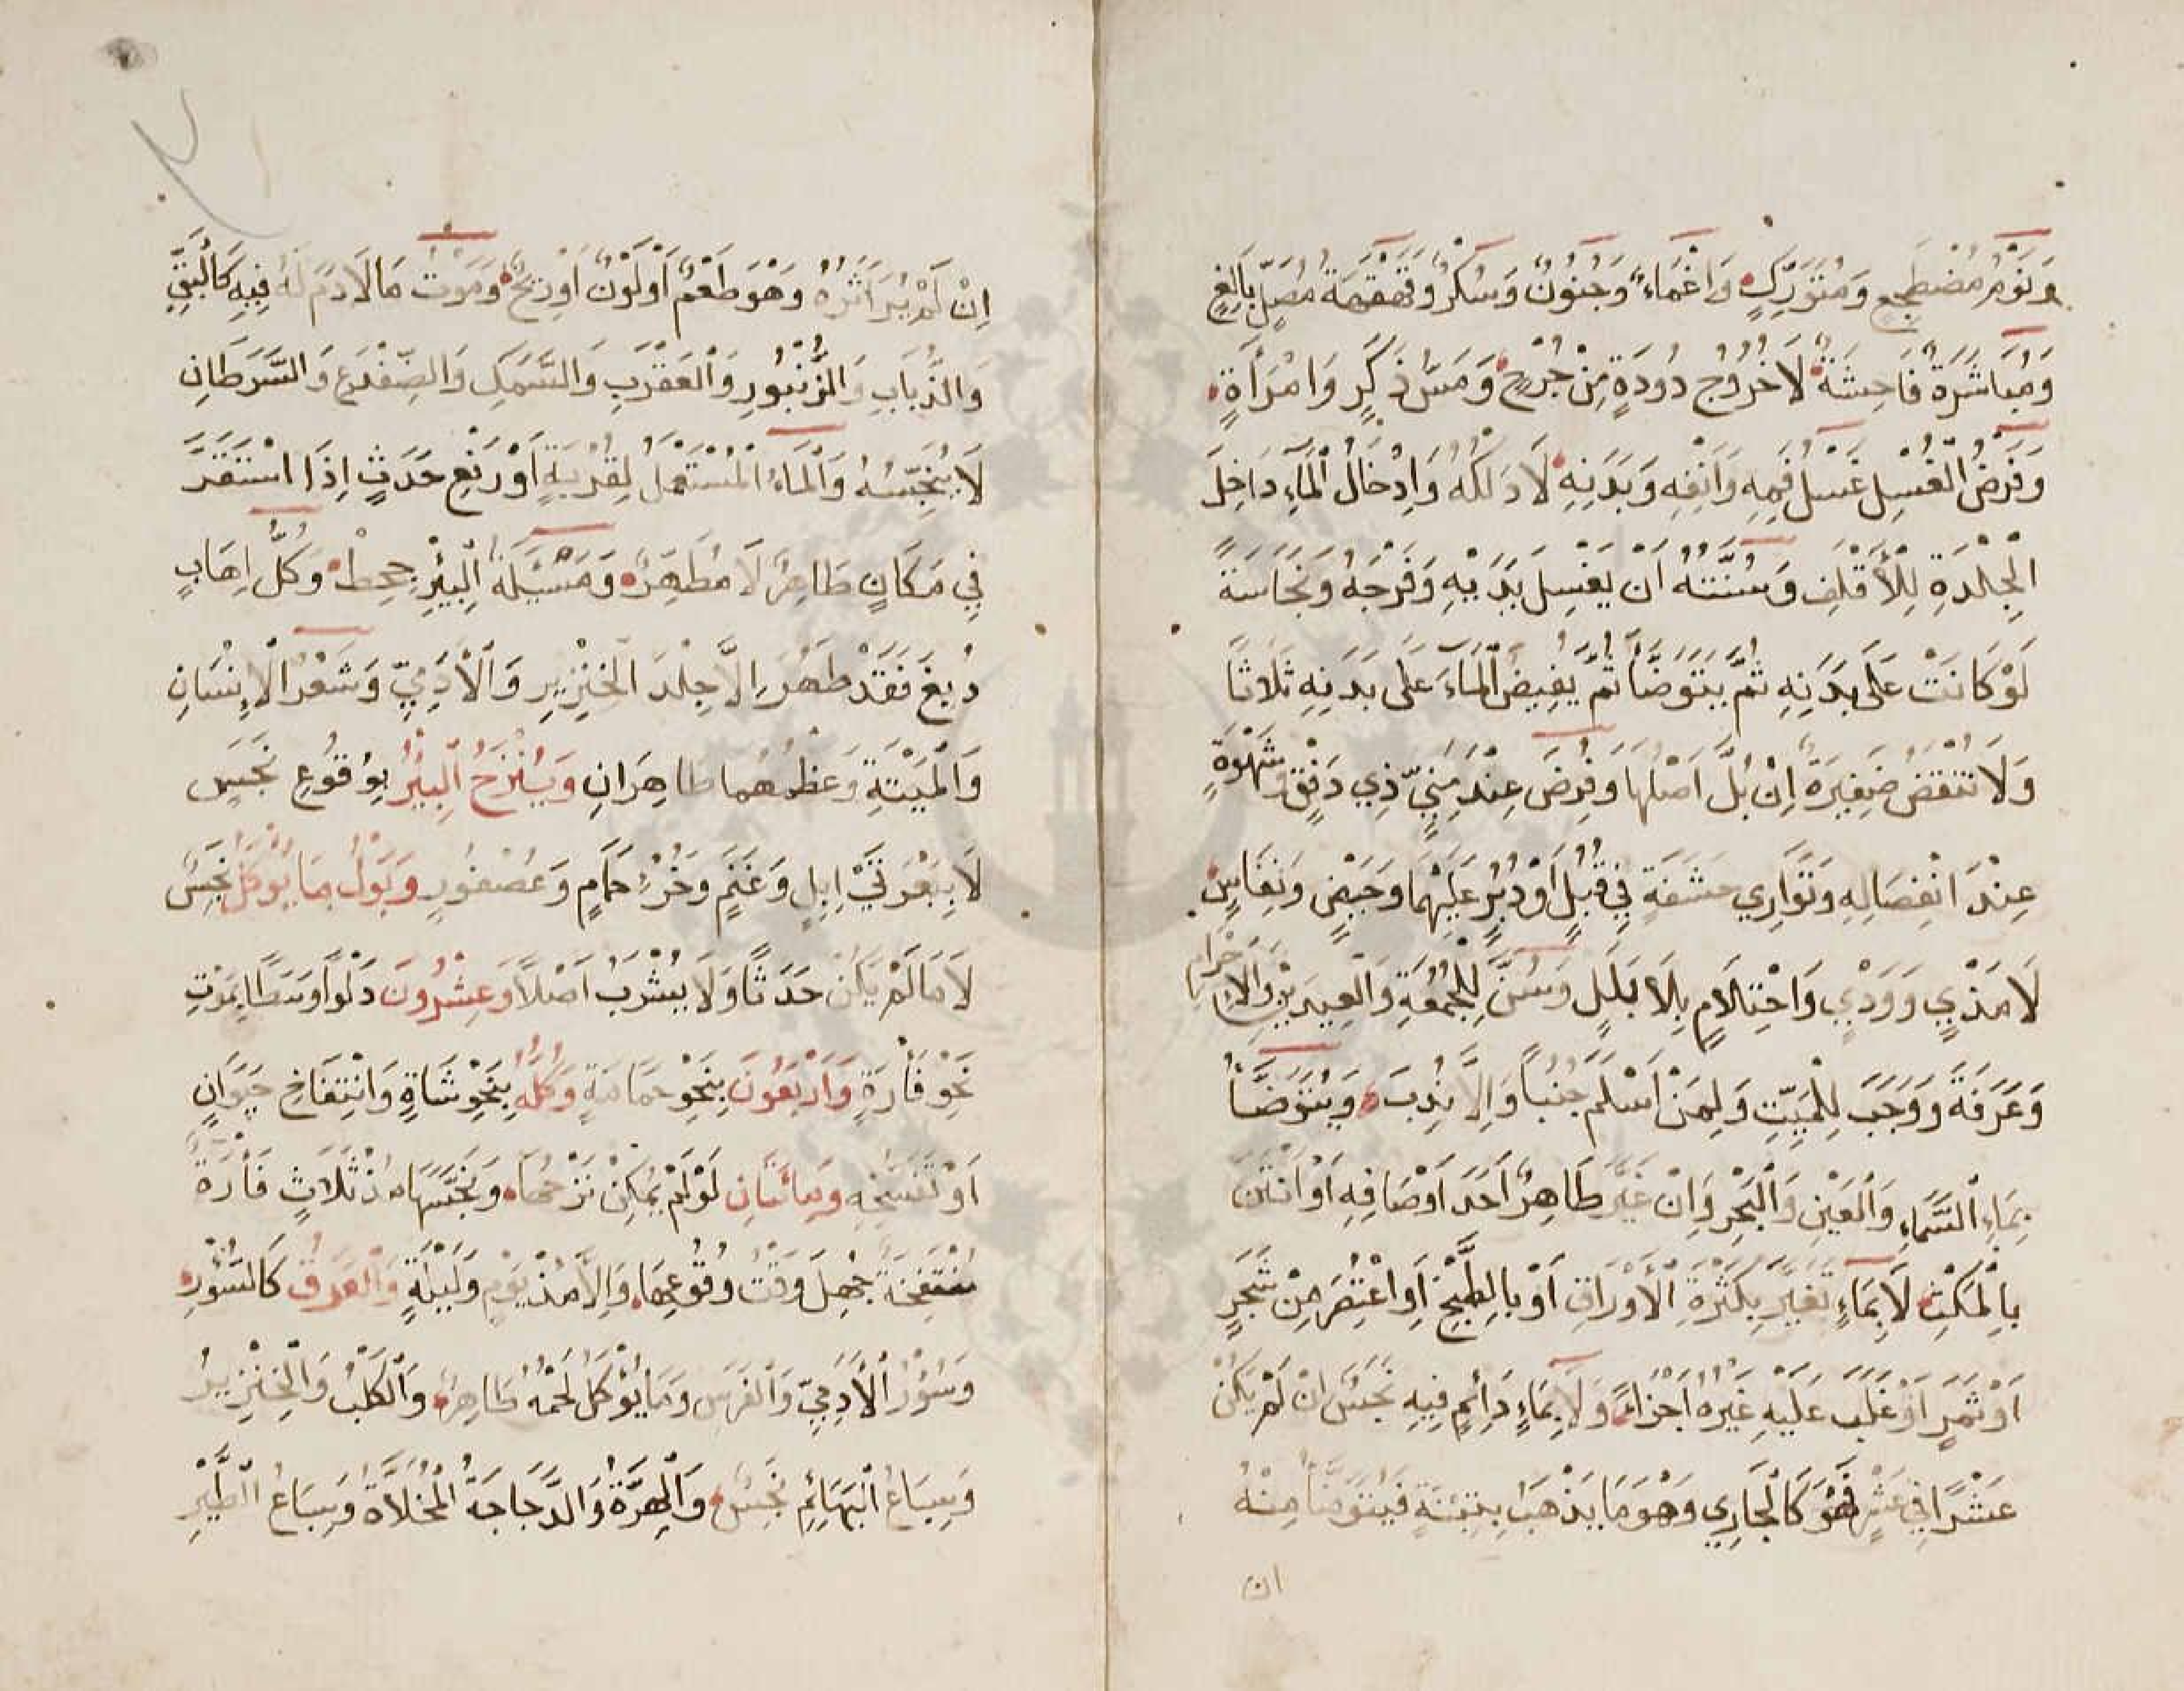 وَنَوْمُ مُضْطَجِعٍ وَمُتَوَرِّكٍ وَاِغْمَاءٌ وَجُنُونٌ وَسُكْرٌ وَقَهْقَهَةُ مُصَلٍّ بَالِغٍ
وَمُبَاشَرَةٌ فَاحِشَةٌ لَا خُرُوجُ دُودَةٍ مِنْ جُرْحٍ وَمَسُّ ذَكَرٍ وَامْرَأَةٍ
وَفَرْضُ الْغُسْلِ غَسْلُ فَمِهِ وَاَنْفِهِ وَبَدَنِهِ لَا دَلْكُهُ وَاِدْخَالُ الْمَاءِ دَاخِلَ
الْجِلْدَةِ لِلْأَقْلَفِ وَسُنَّتُهُ اَنْ يَغْسِلَ يَدَيْهِ وَفَرْجَهُ وَنَجَاسَةً
لَوْ كَانَتْ عَلَى بَدَنِهِ ثُمَّ يَتَوَضَّأُ ثُمَّ يُفِيضُ الْمَاءَ عَلَى بَدَنِهِ ثَلَاثًا
وَلَا تُنْقَضُ ضَفِيرَةٌ اِنْ بُلَّ اَصْلُهَا وَفُرِضَ عِنْدَ مَنِيٍّ ذِي دَفْقٍ وَشَهْوَةٍ
عِنْدَ انْفِصَالِهِ وَتَوَارِي حَشَفَةٍ فِي قُبُلٍ اَوْ دُبُرٍ عَلَيْهِمَا وَحَيْضٍ وَنِفَاسٍ
لَا مَذْيٍ وَوَدْيٍ وَاحْتِلَامٍ بِلَا بَلَلٍ وَسُنَّ لِلْجُمُعَةِ وَالْعِيدَيْنِ وَالْاِحْرَامِ
وَعَرَفَةَ وَوَجَبَ لِلْمَيِّتِ وَلِمَنْ اَسْلَمَ جُنُبًا وَاِلَّا نُدِبَ وَيُتَوَضَّأُ
بِمَاءِ السَّمَاءِ وَالْعَيْنِ وَالْبَحْرِ وَاِنْ غَيَّرَ طَاهِرٌ اَحَدَ اَوْصَافِهِ اَوْ اَنْتَنَ
بِالْمَكْثِ لَا بِمَاءٍ تَغَيَّرَ بِكَثْرَةِ الْأَوْرَاقِ اَوْ بِالطَّبْخِ اَوِ اعْتُصِرَ مِنْ شَجَرٍ
اَوْ ثَمَرٍ اَوْ غَلَبَ عَلَيْهِ غَيْرُهُ اَجْزَاءً وَلَا بِمَاءٍ دَائِمٍ فِيهِ نَجَسٌ اِنْ لَمْ يَكُنْ
عَشْرًا فِي عَشْرٍ فَهُوَ كَالْجَارِي وَهُوَ مَا يَذْهَبُ بِتِبْنَةٍ فَيُتَوَضَّأُ مِنْهُ
ان
اِنْ لَمْ يُرَ اَثَرُهُ وَهُوَ طَعْمٌ اَوْ لَوْنٌ اَوْ رِيحٌ وَمَوْتُ مَا لَا دَمَ لَهُ فِيهِ كَالْبَقِّ
وَالذُّبَابِ وَالزُّنْبُورِ وَالْعَقْرَبِ وَالسَّمَكِ وَالضِّفْدَعِ وَالسَّرَطَانِ
لَا يُنَجِّسُهُ وَالْمَاءُ الْمُسْتَعْمَلُ لِقُرْبَةٍ اَوْ رَفْعِ حَدَثٍ اِذَا اسْتَقَرَّ
فِي مَكَانٍ طَاهِرٌ لَا مُطَهِّرٌ وَمَسْئَلَةُ الْبِئْرِ جحط وَكُلُّ اِهَابٍ
دُبِغَ فَقَدْ طَهُرَ اِلَّا جِلْدَ الْخِنْزِيرِ وَالْأَدَمِيِّ وَشَعْرُ الْاِنْسَانِ
وَالْمَيْتَةِ وَعَظْمُهُمَا طَاهِرَانِ وَيُنْزَحُ الْبِئْرُ بِوُقُوعِ نَجَسٍ
لَا بِبَعْرَتَيْ اِبِلٍ وَغَنَمٍ وَخُرْءِ حَمَامٍ وَعُصْفُورٍ وَبَوْلُ مَا يُوْكَلُ نَجَسٌ
لَا مَا لَمْ يَكُنْ حَدَثًا وَلَا يُشْرَبُ اَصْلًا وَعِشْرُونَ دَلْوًا وَسَطًا بِمَوْتِ
نَحْوِ فَأْرَةٍ وَاَرْبَعُونَ بِنَحْوِ حَمَامَةٍ وَكُلُّهُ بِنَحْوِ شَاةٍ وَانْتِفَاخِ حَيَوَانٍ
اَوْ تَفَسُّخِهِ وَمِائَتَانِ لَوْ لَمْ يُمْكِنْ نَزْحُهَا وَنَجَّسَهَا مُذْ ثَلَاثٍ فَأْرَةٌ
مُنْتَفِخَةٌ جُهِلَ وَقْتُ وُقُوعِهَا وَاِلَّا مُذْ يَوْمٍ وَلَيْلَةٍ وَالْعَرَقُ كَالسُّؤْرِ
وَسُؤْرُ الْأَدَمِيِّ وَالْفَرَسِ وَمَا يُؤْكَلُ لَحْمُهُ طَاهِرٌ وَالْكَلْبُ وَالْخِنْزِيرُ
وَسِبَاعُ الْبَهَائِمِ نَجَسٌ وَالْهِرَّةُ وَالدَّجَاجَةُ الْمُخَلَّاةُ وَسِبَاعُ الطَّيْرِ